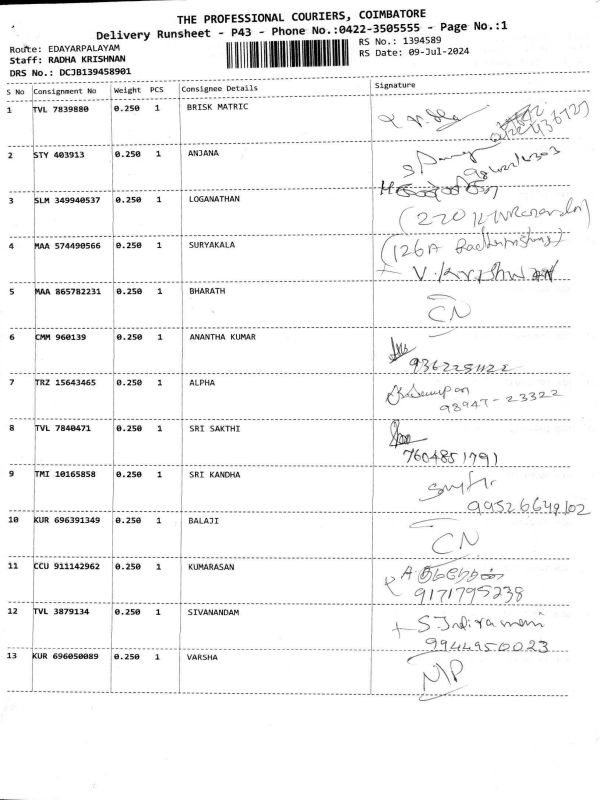 THE PROFESSIONAL COURIERS, COIMBATORE
Delivery Runsheet - P43 - Phone No.:0422-3505555 - Page No.:1
Route: EDAYARPALAYAM
RS No.: 1394589
Staff: RADHA KRISHNAN
RS Date: 09-Jul-2024
DRS No.: DCJB139458901
S No Consignment No Weight PCS Consignee Details Signature
1 TVL 7839880 0.250 1 BRISK MATRIC
2 STY 403913 0.250 1 ANJANA
3 SLM 349940537 0.250 1 LOGANATHAN
(220
4 MAA 574490566 0.250 1 SURYAKALA
(126A
5 MAA 865782231 0.250 1 BHARATH
CN
6 CMM 960139 0.250 1 ANANTHA KUMAR
9362251122
7 TRZ 15643465 0.250 1 ALPHA
98947-23322
8 TVL 7840471 0.250 1 SRI SAKTHI
7604851791
9 TMI 10165858 0.250 1 SRI KANDHA
10 KUR 696391349 0.250 1 BALAJI
CN
11 CCU 911142962 0.250 1 KUMARASAN
9171795238
12 TVL 3879134 0.250 1 SIVANANDAM
S.Indiramani
9944950023
13 KUR 696050089 0.250 1 VARSHA
N/P